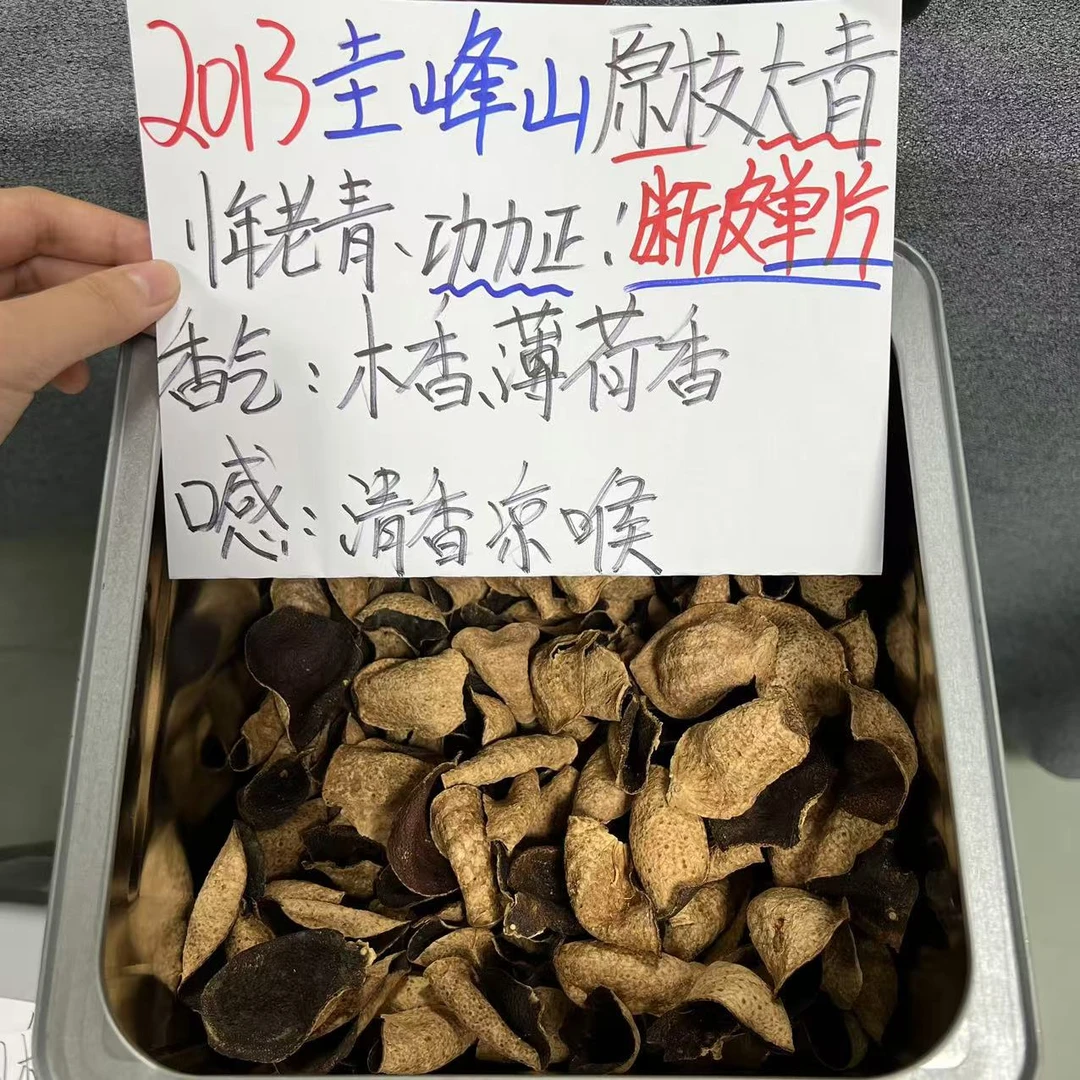 2013圭峰山原枝大青
10年老青、功力正:断皮单片
香气:木香、薄荷香
口感:清香凉喉